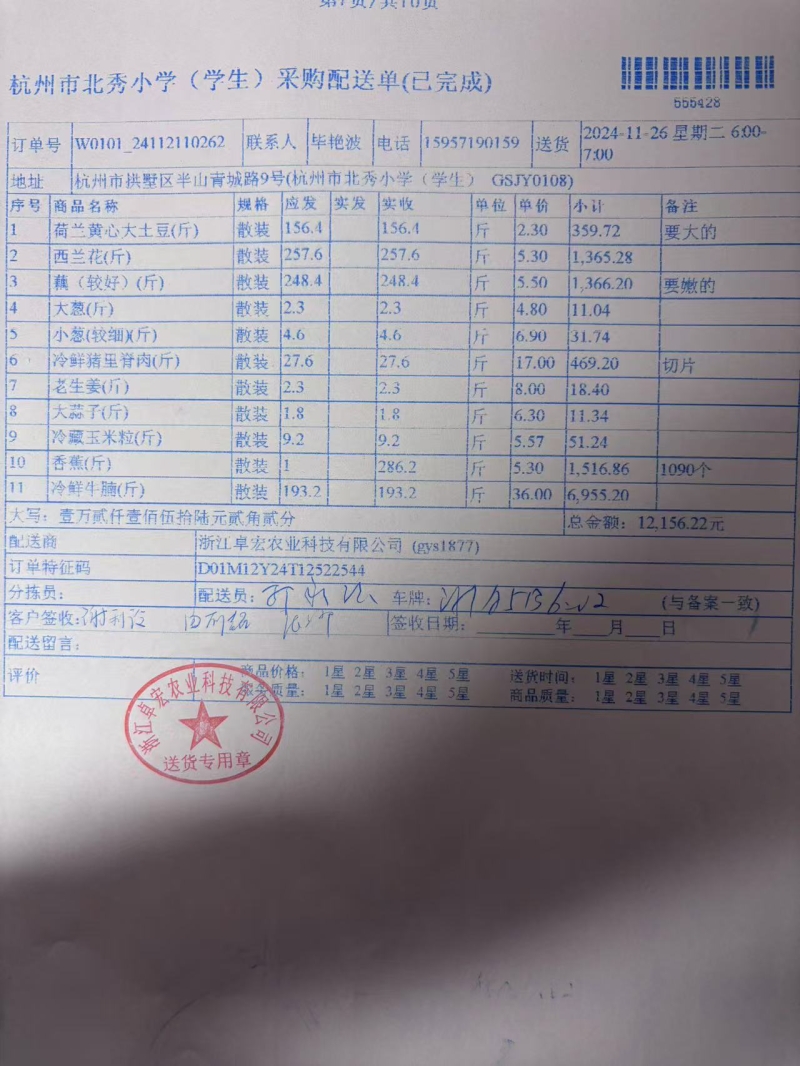 第1页/共10页
杭州市北秀小学（学生）采购配送单(已完成)
555428
订单号 W0101_24112110262 联系人 毕艳波 电话 15957190159 送货 2024-11-26 星期二 6:00-7:00
地址 杭州市拱墅区半山青城路9号(杭州市北秀小学（学生） GSJY0108)
序号 商品名称 规格 应发 实发 实收 单位 单价 小计 备注
1 荷兰黄心大土豆(斤) 散装 156.4 156.4 斤 2.30 359.72 要大的
2 西兰花(斤) 散装 257.6 257.6 斤 5.30 1,365.28
3 藕（较好）(斤) 散装 248.4 248.4 斤 5.50 1,366.20 要嫩的
4 大葱(斤) 散装 2.3 2.3 斤 4.80 11.04
5 小葱(较细)(斤) 散装 4.6 4.6 斤 6.90 31.74
6 冷鲜猪里脊肉(斤) 散装 27.6 27.6 斤 17.00 469.20 切片
7 老生姜(斤) 散装 2.3 2.3 斤 8.00 18.40
8 大蒜子(斤) 散装 1.8 1.8 斤 6.30 11.34
9 冷藏玉米粒(斤) 散装 9.2 9.2 斤 5.57 51.24
10 香蕉(斤) 散装 1 286.2 斤 5.30 1,516.86 1090个
11 冷鲜牛腩(斤) 散装 193.2 193.2 斤 36.00 6,955.20
大写：壹万贰仟壹佰伍拾陆元贰角贰分 总金额：12,156.22元
配送商 浙江卓宏农业科技有限公司 (gys1877)
订单特征码 D01M12Y24T12522544
分拣员： 配送员： 车牌： (与备案一致)
客户签收： 签收日期： 年 月 日
配送留言：
评价 商品价格： 1星 2星 3星 4星 5星 送货时间： 1星 2星 3星 4星 5星
质量： 1星 2星 3星 4星 5星 商品质量： 1星 2星 3星 4星 5星
浙江卓宏农业科技有限公司
送货专用章